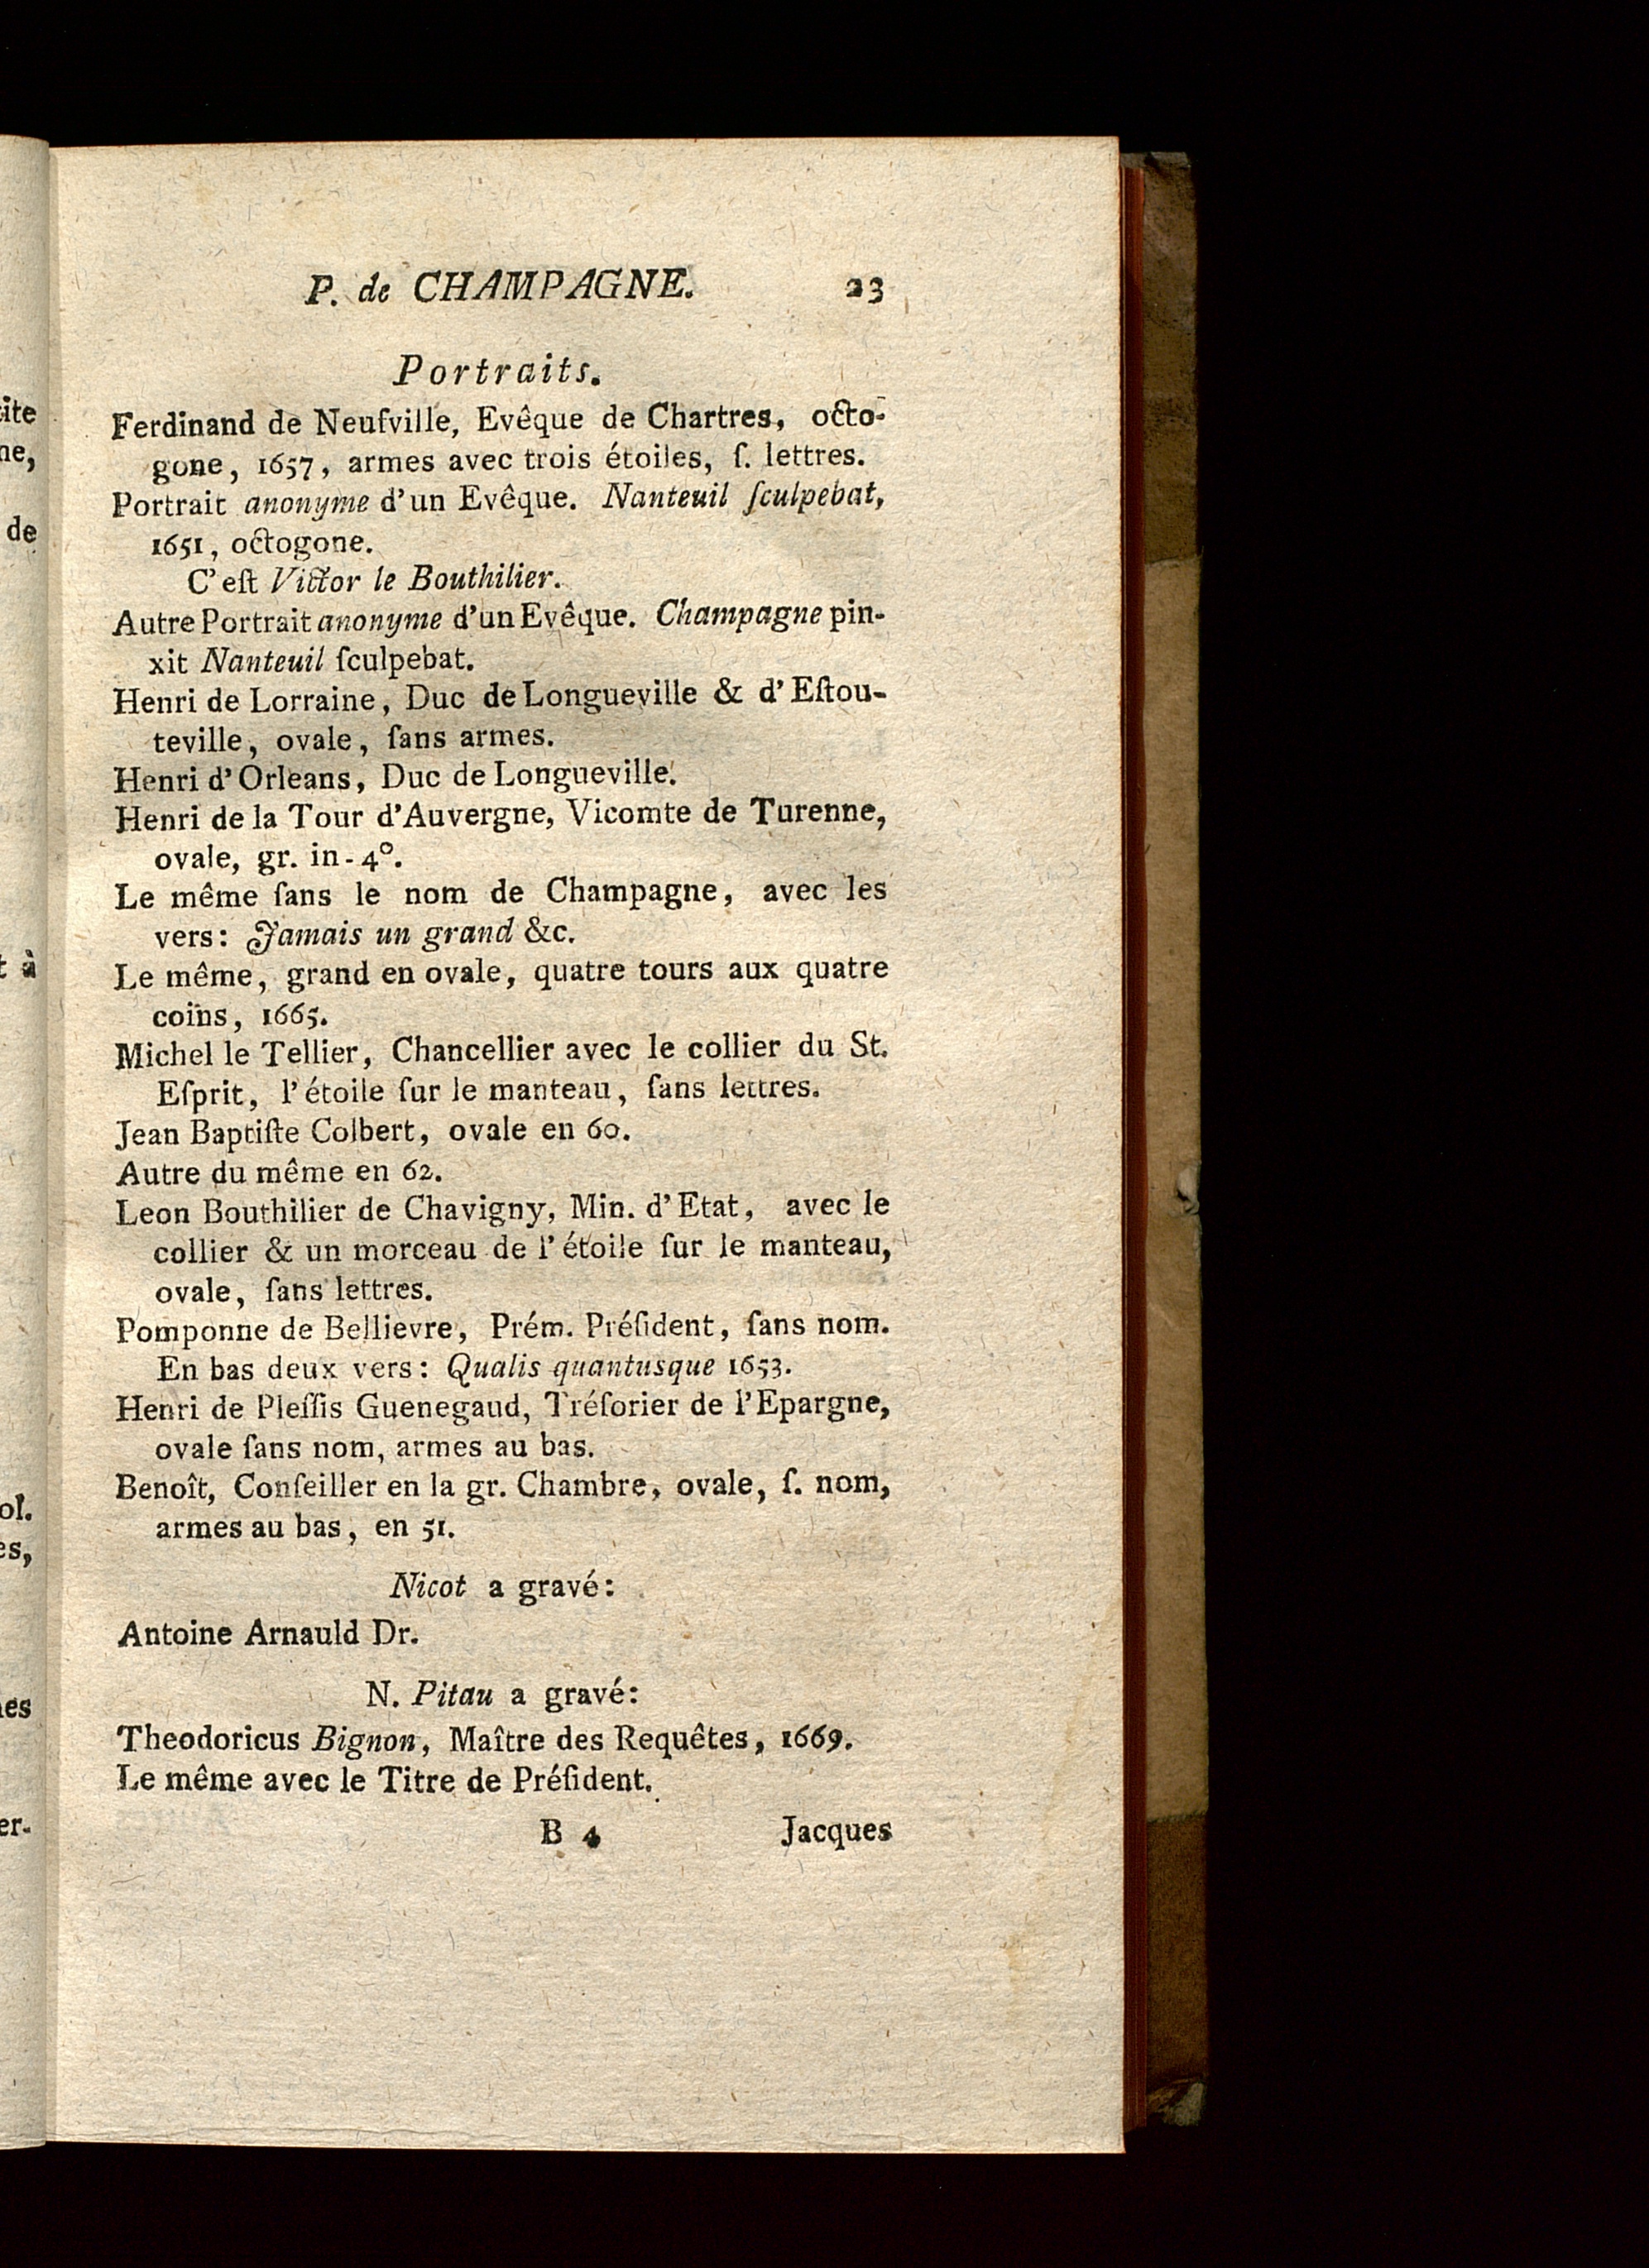 P. de CHAMPAGNE. 23
Portraits.
Ferdinand de Neufville, Evêque de Chartres, octo-
gone, 1657, armes avec trois étoiles, ſ. lettres.
Portrait anonyme d'un Evêque. Nanteuil ſculpebat,
1651, octogone.
C'eſt Victor le Bouthilier.
Autre Portrait anonyme d'un Evêque. Champagne pin-
xit Nanteuil ſculpebat.
Henri de Lorraine, Duc de Longueville & d'Eſtou-
teville, ovale, ſans armes.
Henri d'Orleans, Duc de Longueville.
Henri de la Tour d'Auvergne, Vicomte de Turenne,
ovale, gr. in-4°.
Le même ſans le nom de Champagne, avec les
vers: Jamais un grand &c.
Le même, grand en ovale, quatre tours aux quatre
coins, 1665.
Michel le Tellier, Chancellier avec le collier du St.
Eſprit, l'étoile ſur le manteau, ſans lettres.
Jean Baptiſte Colbert, ovale en 60.
Autre du même en 62.
Leon Bouthilier de Chavigny, Min. d'Etat, avec le
collier & un morceau de l'étoile ſur le manteau,
ovale, ſans lettres.
Pomponne de Bellievre, Prém. Préſident, ſans nom.
En bas deux vers: Qualis quantusque 1653.
Henri de Pleſſis Guenegaud, Tréſorier de l'Epargne,
ovale ſans nom, armes au bas.
Benoît, Conſeiller en la gr. Chambre, ovale, ſ. nom,
armes au bas, en 51.
Nicot a gravé:
Antoine Arnauld Dr.
N. Pitau a gravé:
Theodoricus Bignon, Maître des Requêtes, 1669.
Le même avec le Titre de Préſident.
B 4 Jacques